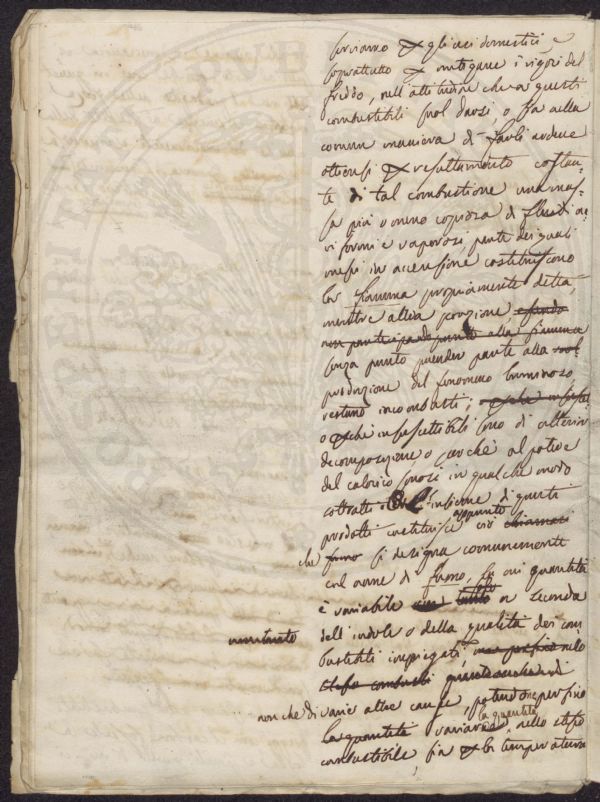 serviamo per gli usi domestici, e
soprattutto per mitigare i rigori del
freddo, nell'attitudine che a questi
combustibili suol darsi, o sia nella
comun maniera di farli ardere
ottiensi per risultamento costan-
te di tal combustione una mas-
sa più o meno copiosa di fluidi ae-
riformi e vaporosi, parte dei quali
messi in accensione costituiscono
la fiamma propriamente detta,
mentre altra porzione, essendo
senza punto prender parte alla
produzione del fenomeno luminoso
restano incombusti;
o perchè insuscettibili sono di ulterior
decomposizione, o perchè al potere
del calorico sonosi in qualche modo
sottratti. L'insieme di questi
prodotti costituisce appunto ciò chiamasi
che fumo si designa comunemente
col nome di fumo, la cui quantità
è variabile a seconda
dell'indole o della qualità dei com-
bustibili impiegati,
non che di varie altre cause, potendone perfino
la quantità variare la quantità nello stesso
combustibile, sia per la temperatura